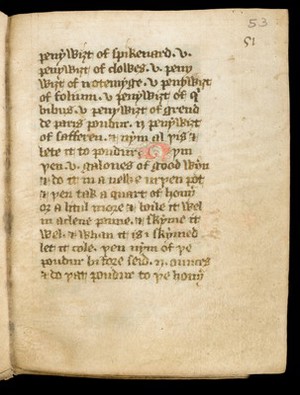 53
51
penyƿiȝt of spikenard . v .
penyƿiȝt of cloƿes . v . peny
ƿiȝt of notemyge . v penyƿiȝt
of folium . v penyƿiȝt of
bibus . v penyƿiȝt of greyn
de paris poudur . ij penyƿiȝt
of safferen . & nym al þis &
bete it to poudur Nym
þen . v . galones of good ƿyn
& do it in a nelle erþen pot
& þen tak a quart of hony
or a litul more & boile it ƿel
in a clene panne . & skyme it
ƿel . & ƿhan it is i skymed
let it cole . þen nym of þe
poudur bifore seid . ij . ounces
& do þat poudur to þe hony